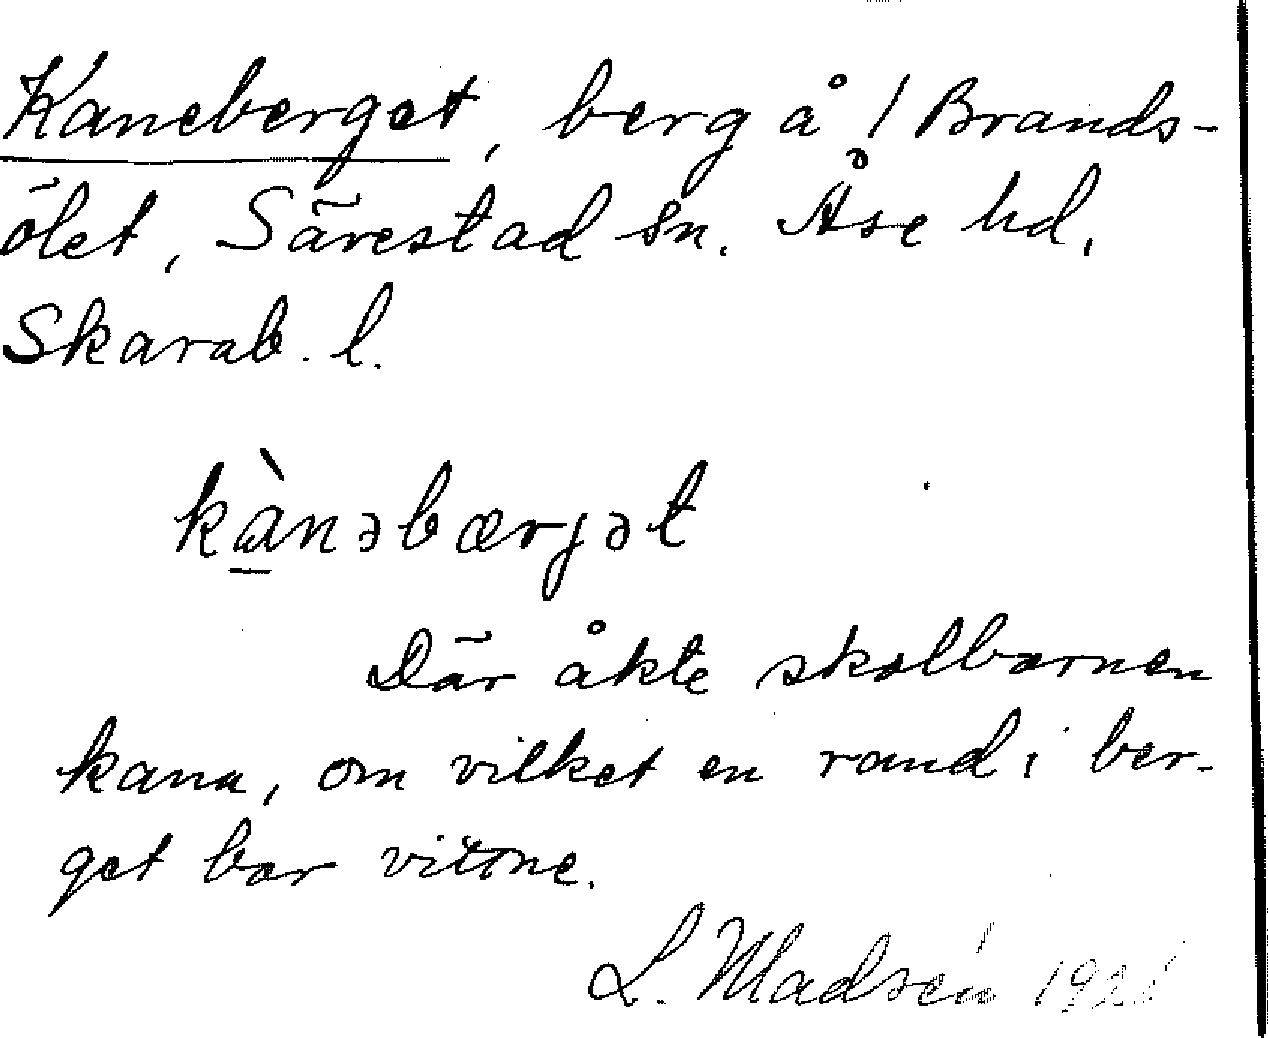 Kaneberget, berg å 1 Brands-
ölet, Särestad sn. Åse hd,
Skarab. l.
kànəbærjət
Där åkte skolbarnen
kana, om vilket en rand i ber-
get bar vittne.
L. Madsén